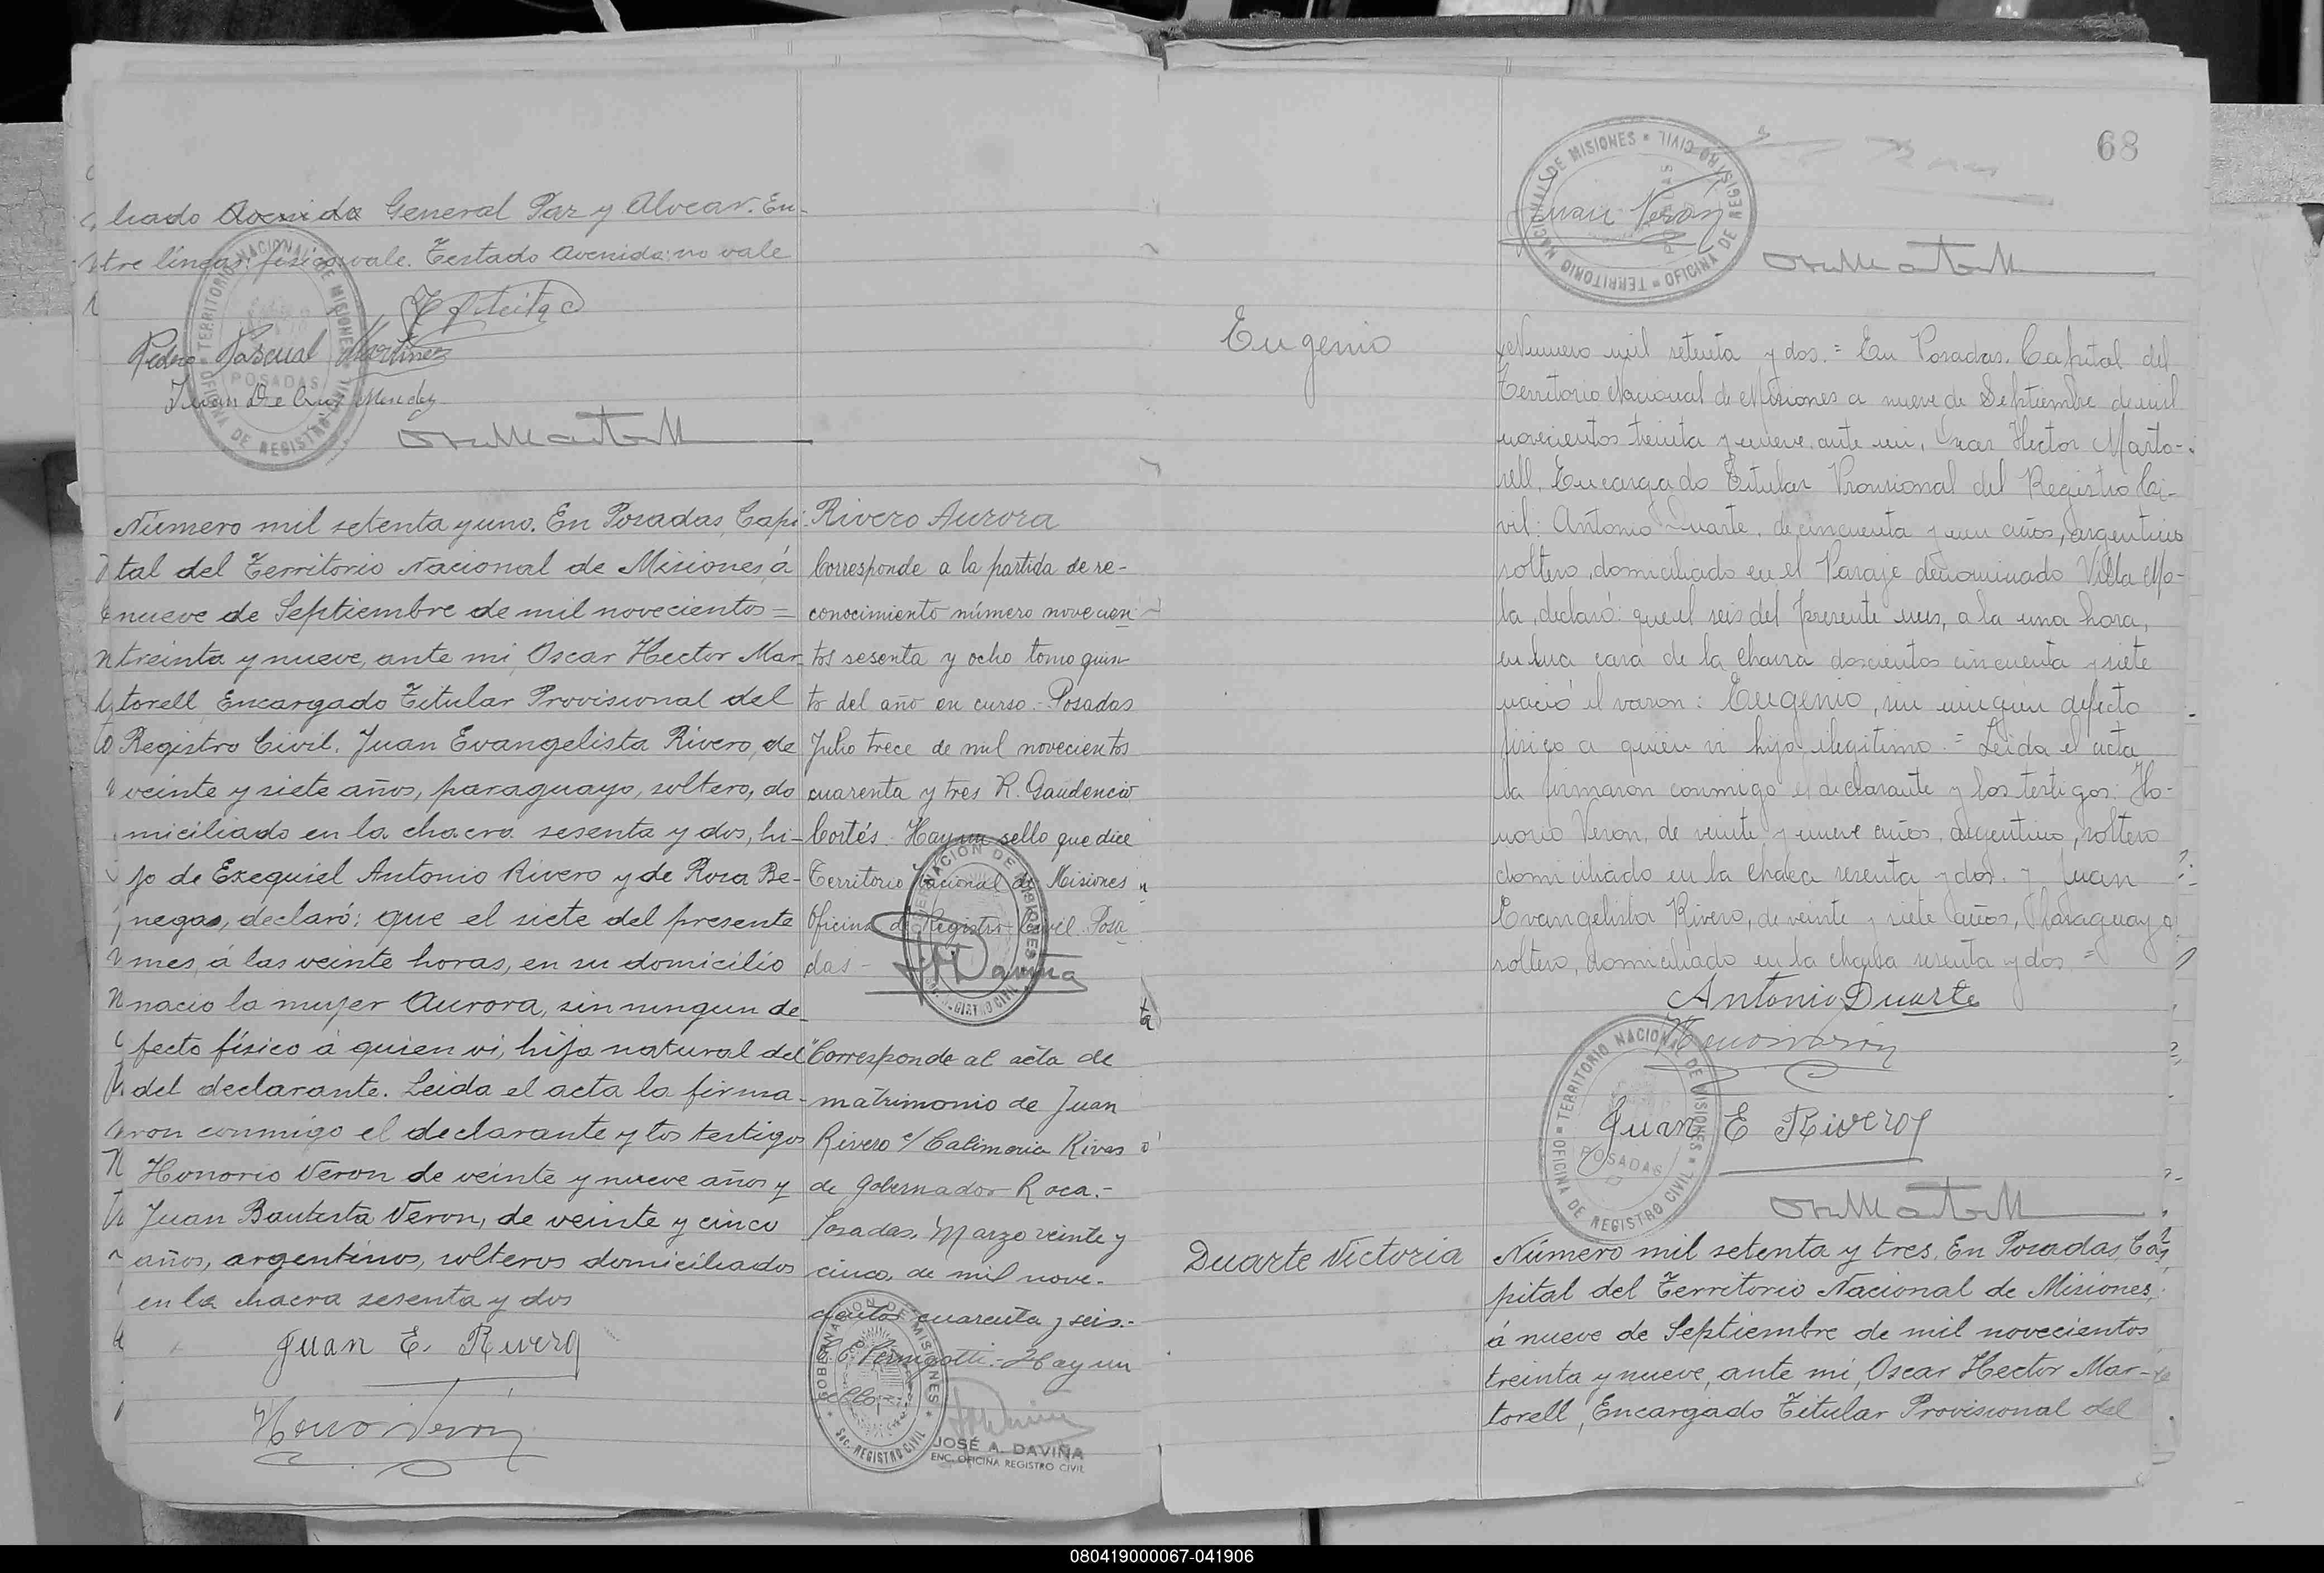 liado Avenida General Paz y Alvear. En-
tre lineas: físico: vale. Testado Avenida: no vale
Pedro Pascual Martinez
Juan De la Cruz Mendez
TERRITORIO NACIONAL DE MISIONES
POSADAS
OFICINA DE REGISTRO CIVIL
Número mil setenta y uno. En Posadas, Capi
tal del Territorio Nacional de Misiones, á
nueve de Septiembre de mil novecientos =
treinta y nueve, ante mi, Oscar Hector Mar-
torell, Encargado Titular Provisional del
Registro Civil. Juan Evangelista Rivero, de
veinte y siete años, paraguayo, soltero, do
miciliado en la chacra sesenta y dos, hi-
jo de Exequiel Antonio Rivero y de Rosa Be-
negas, declaró: que el siete del presente
mes, á las veinte horas, en su domicilio
nacio la mujer Aurora, sin ningun de-
fecto físico á quien vi, hija natural del
del declarante. Leida el acta la firma-
ron conmigo el declarante y los testigos
Honorio Veron de veinte y nueve años y
Juan Bautista Veron, de veinte y cinco
años, argentinos, solteros domiciliados
en la chacra sesenta y dos
Juan E. Rivero
Rivero Aurora
Corresponde a la partida de re-
conocimiento número novecien
tos sesenta y ocho tomo quin
to del año en curso.- Posadas
Julio trece de mil novecientos
cuarenta y tres R. Gaudencio
Cortés. Hay un sello que dice
Territorio Nacional de Misiones
Oficina de Registro Civil. Posa
das -
GOBERNACIÓN DE MISIONES
REGISTRO CIVIL
Corresponde al acta de
matrimonio de Juan
Rivero c/ Calimeria Rivas
de Gobernador Roca.-
Posadas, Marzo veinte y
cinco, de mil nove-
cientos cuarenta y seis.-
Hay un
sello
GOBERNACION DE MISIONES
SOC. REGISTRO CIVIL
JOSÉ A. DAVIÑA
ENC. OFICINA REGISTRO CIVIL
68
TERRITORIO NACIONAL DE MISIONES
POSADAS
OFICINA DE REGISTRO CIVIL
Juan Veron
Eugenio
Numero mil setenta y dos.= En Posadas, Capital del
Territorio Nacional de Misiones a nueve de Septiembre de mil
novecientos treinta y nueve, ante mi, Oscar Hector Marto-
rell, Encargado Titular Provisional del Registro Ci-
vil: Antonio Duarte, de cincuenta y un años, argentino
soltero, domiciliado en el Paraje denominado Villa Mo-
la, declaró: que el seis del presente mes, a la una hora,
en una casa de la chacra doscientos cincuenta y siete
nació el varon: Eugenio, sin ningun defecto
fisico a quien vi hijo ilegitimo.= Leida el acta
la firmaron conmigo el declarante y los testigos: Ho-
norio Veron, de veinte y nueve años, argentino, soltero
domiciliado en la chacra sesenta y dos. y Juan
Evangelista Rivero, de veinte y siete años, Paraguayo
soltero, domiciliado en la chacra sesenta y dos.=
Antonio Duarte
TERRITORIO NACIONAL DE MISIONES
POSADAS
OFICINA DE REGISTRO CIVIL
Juan E Rivero
Duarte Victoria
Número mil setenta y tres. En Posadas, Ca
pital del Territorio Nacional de Misiones,
á nueve de Septiembre de mil novecientos
treinta y nueve, ante mi, Oscar Hector Mar-
torell, Encargado Titular Provisional del
080419000067-041906